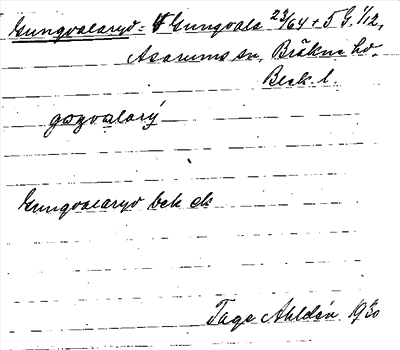 Gungvalaryd = Gungvala 23/64 + 5 G. 1/12,
Asarums sn, Bräkne hd.
Blek. l.
gɔŋvalarý
Gungvalaryd bek ek
Tage Ahldén 1930